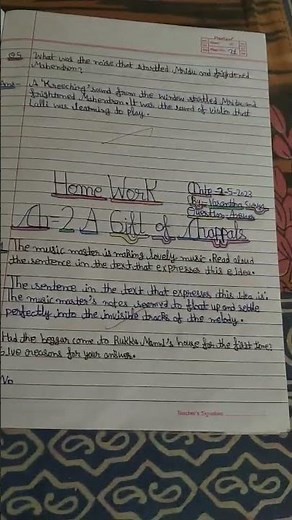 Q5 What was the noise that startled Mridu and frightened
Mahendran?
Ans- A 'Kreeching' sound from the window startled Mridu and
frightened Mahendran. It was the sound of violin that
Lalli was learning to play.
Home Work
Date-2-5-2023
By-
Question Answer
Ch-2 A Gift of Chappals
1 The music master is making lovely music. Read aloud
the sentence in the text that expresses this idea.
The sentence in the text that expresses this idea is:
The music master's notes seemed to float up and settle
perfectly into the invisible tracks of the melody.
Had the beggar come to Rukku Mami's house for the first time?
Give reasons for your answer.
No
Teacher's Signature